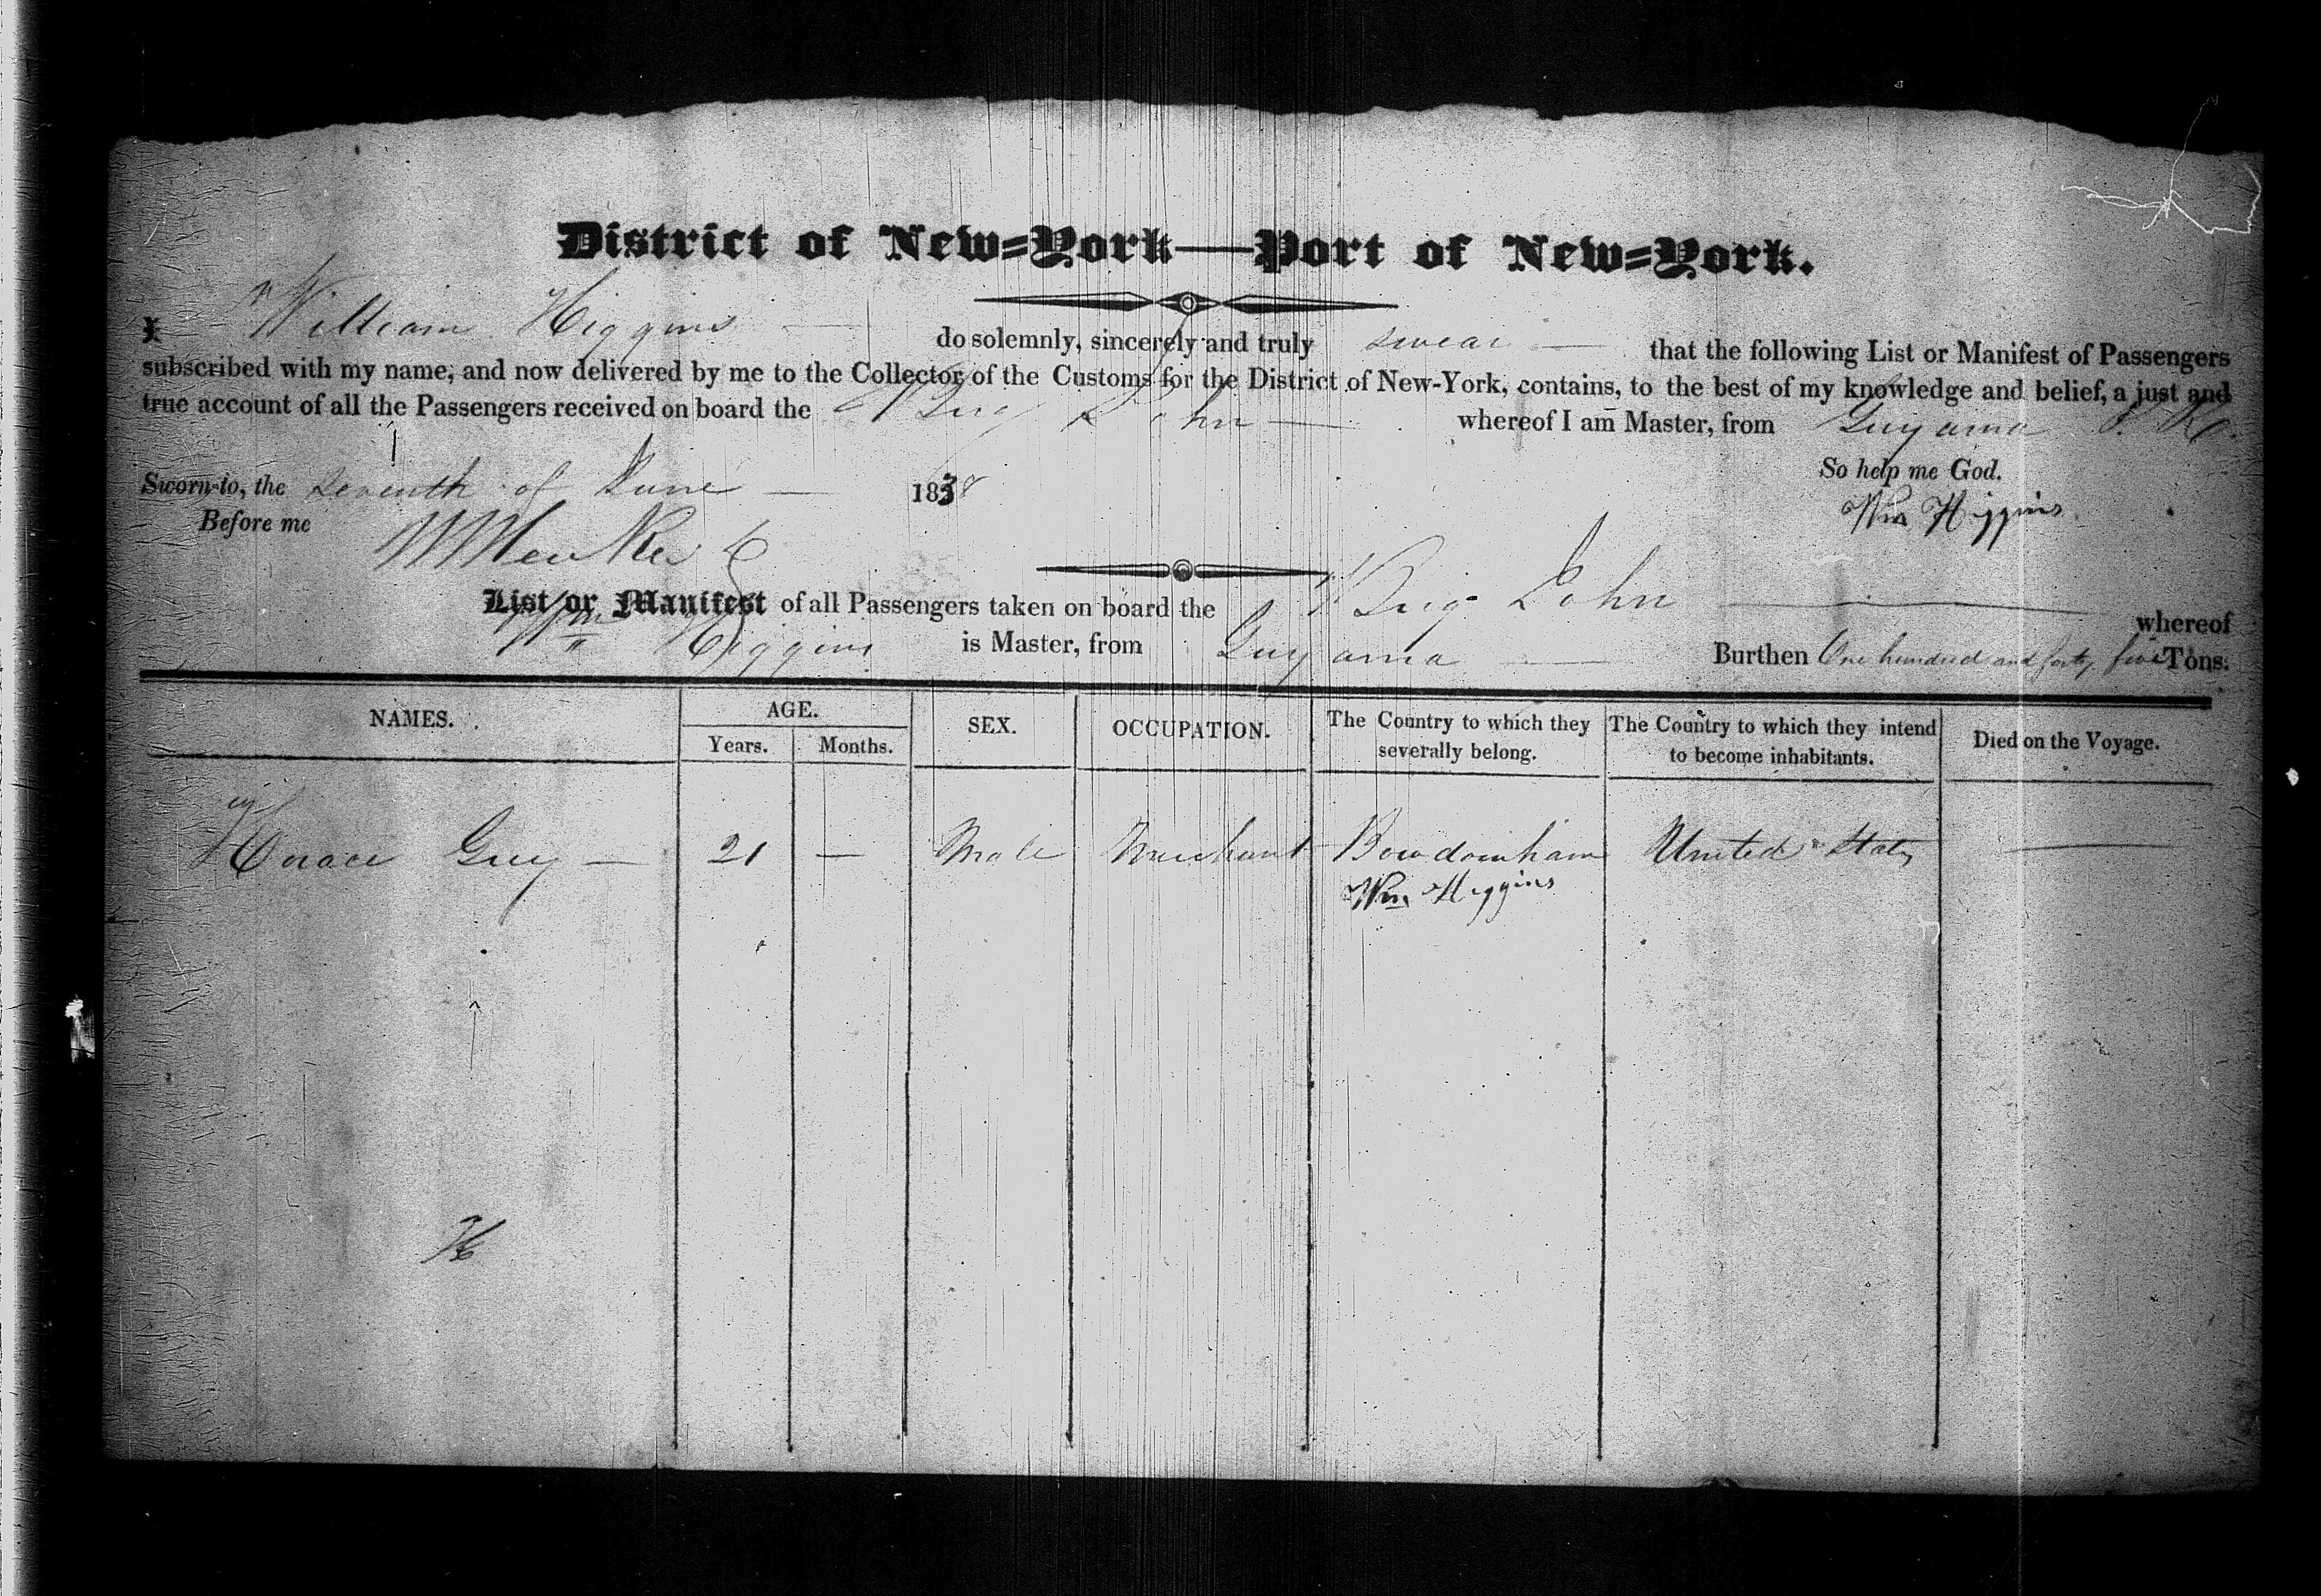 District of New=York—Port of New=York.
I William Higgins — do solemnly, sincerely and truly swear — that the following List or Manifest of Passengers
subscribed with my name, and now delivered by me to the Collector of the Customs for the District of New-York, contains, to the best of my knowledge and belief, a just and
true account of all the Passengers received on board the Brig John — whereof I am Master, from Guyama P. Ro.
So help me God.
Sworn to, the seventh of June — 1838
Wm Higgins
Before me
List or Manifest of all Passengers taken on board the Brig John — whereof
Wm Higgins is Master, from Guyama — Burthen One hundred and forty five Tons.
NAMES. AGE. Years. Months. SEX. OCCUPATION. The Country to which they severally belong. The Country to which they intend to become inhabitants. Died on the Voyage.
Horace Guy — 21 — Male Merchant Bowdoinham United States —
Wm Higgins